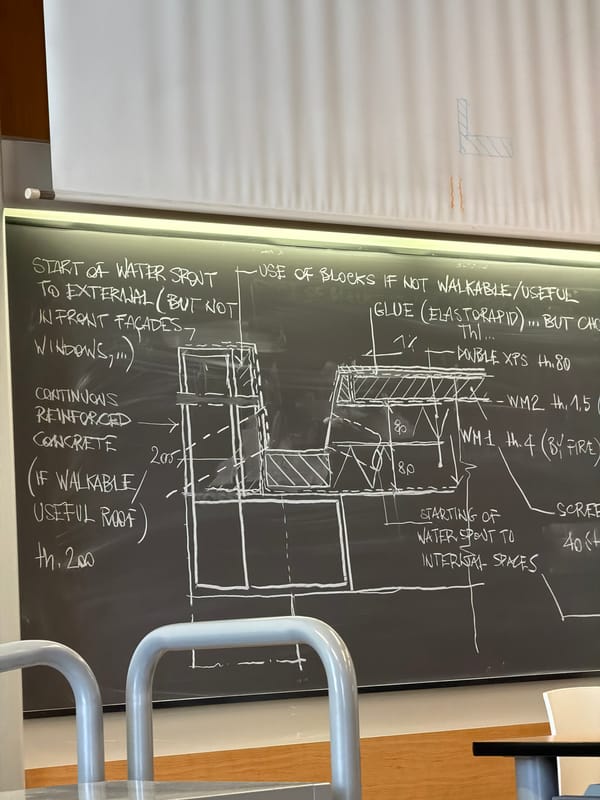 START OF WATER SPOUT
TO EXTERNAL (BUT NOT
IN FRONT FAÇADES
WINDOWS,...)
USE OF BLOCKS IF NOT WALKABLE/USEFUL
GLUE (ELASTORAPID)... BUT CHO
TH1...
1%
DOUBLE XPS th.80
WM2 th.1,5 (
WM1 th.4 (BY FIRE)
CONTINUOUS
REINFORCED
CONCRETE
(IF WALKABLE/
USEFUL ROOF)
th. 200
200
80
80
STARTING OF
WATER SPOUT TO
INTERNAL SPACES
SCREE
40 (